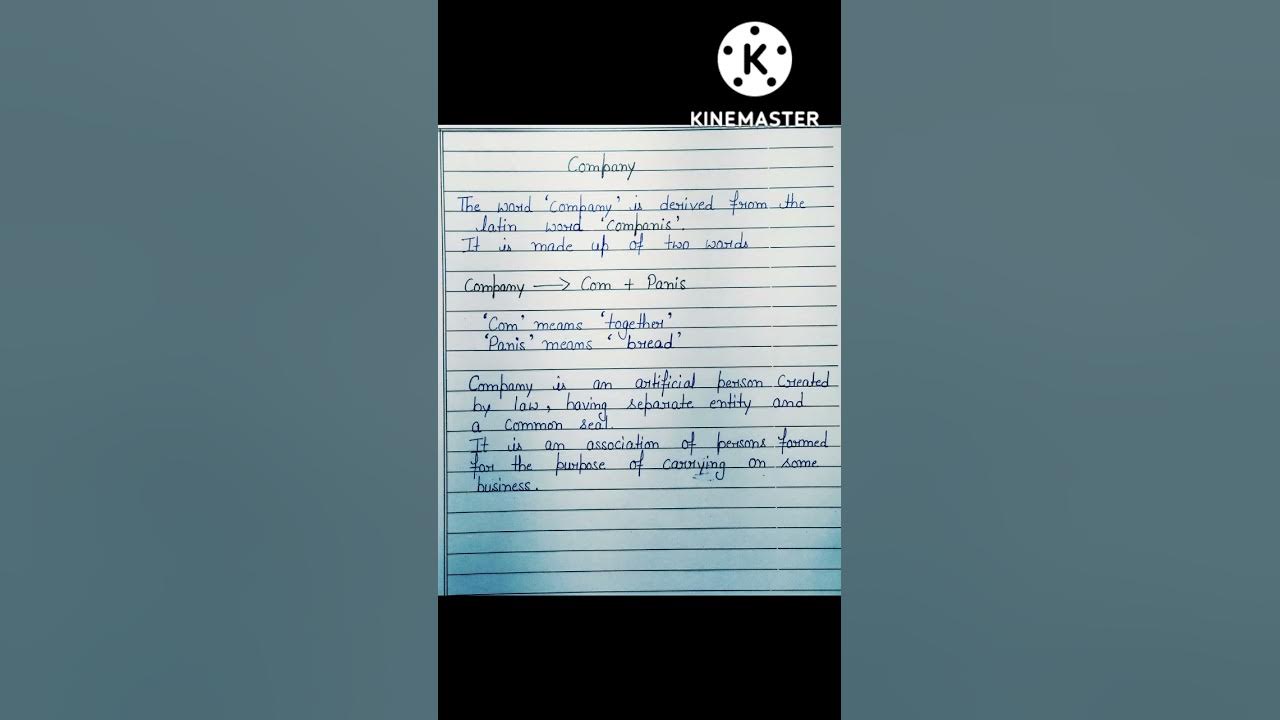 K
KINEMASTER
Company
The word 'Company' is derived from the
latin word 'Companis'.
It is made up of two words
Company → Com + Panis
'Com' means 'together'
'Panis' means ' bread'
Company is an artificial person created
by law, having separate entity and
a common seal.
It is an association of persons formed
for the purpose of carrying on some
business.